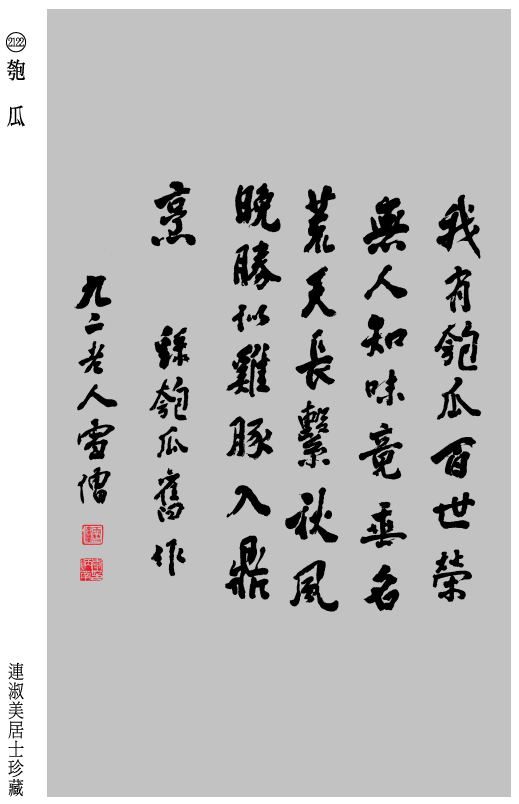 2122
匏瓜
我有匏瓜百世榮
無人知味竟垂名
荒天長繫秋風
晚勝似雞豚入鼎
烹 繇匏瓜舊作
九二老人雪僧
連淑美居士珍藏